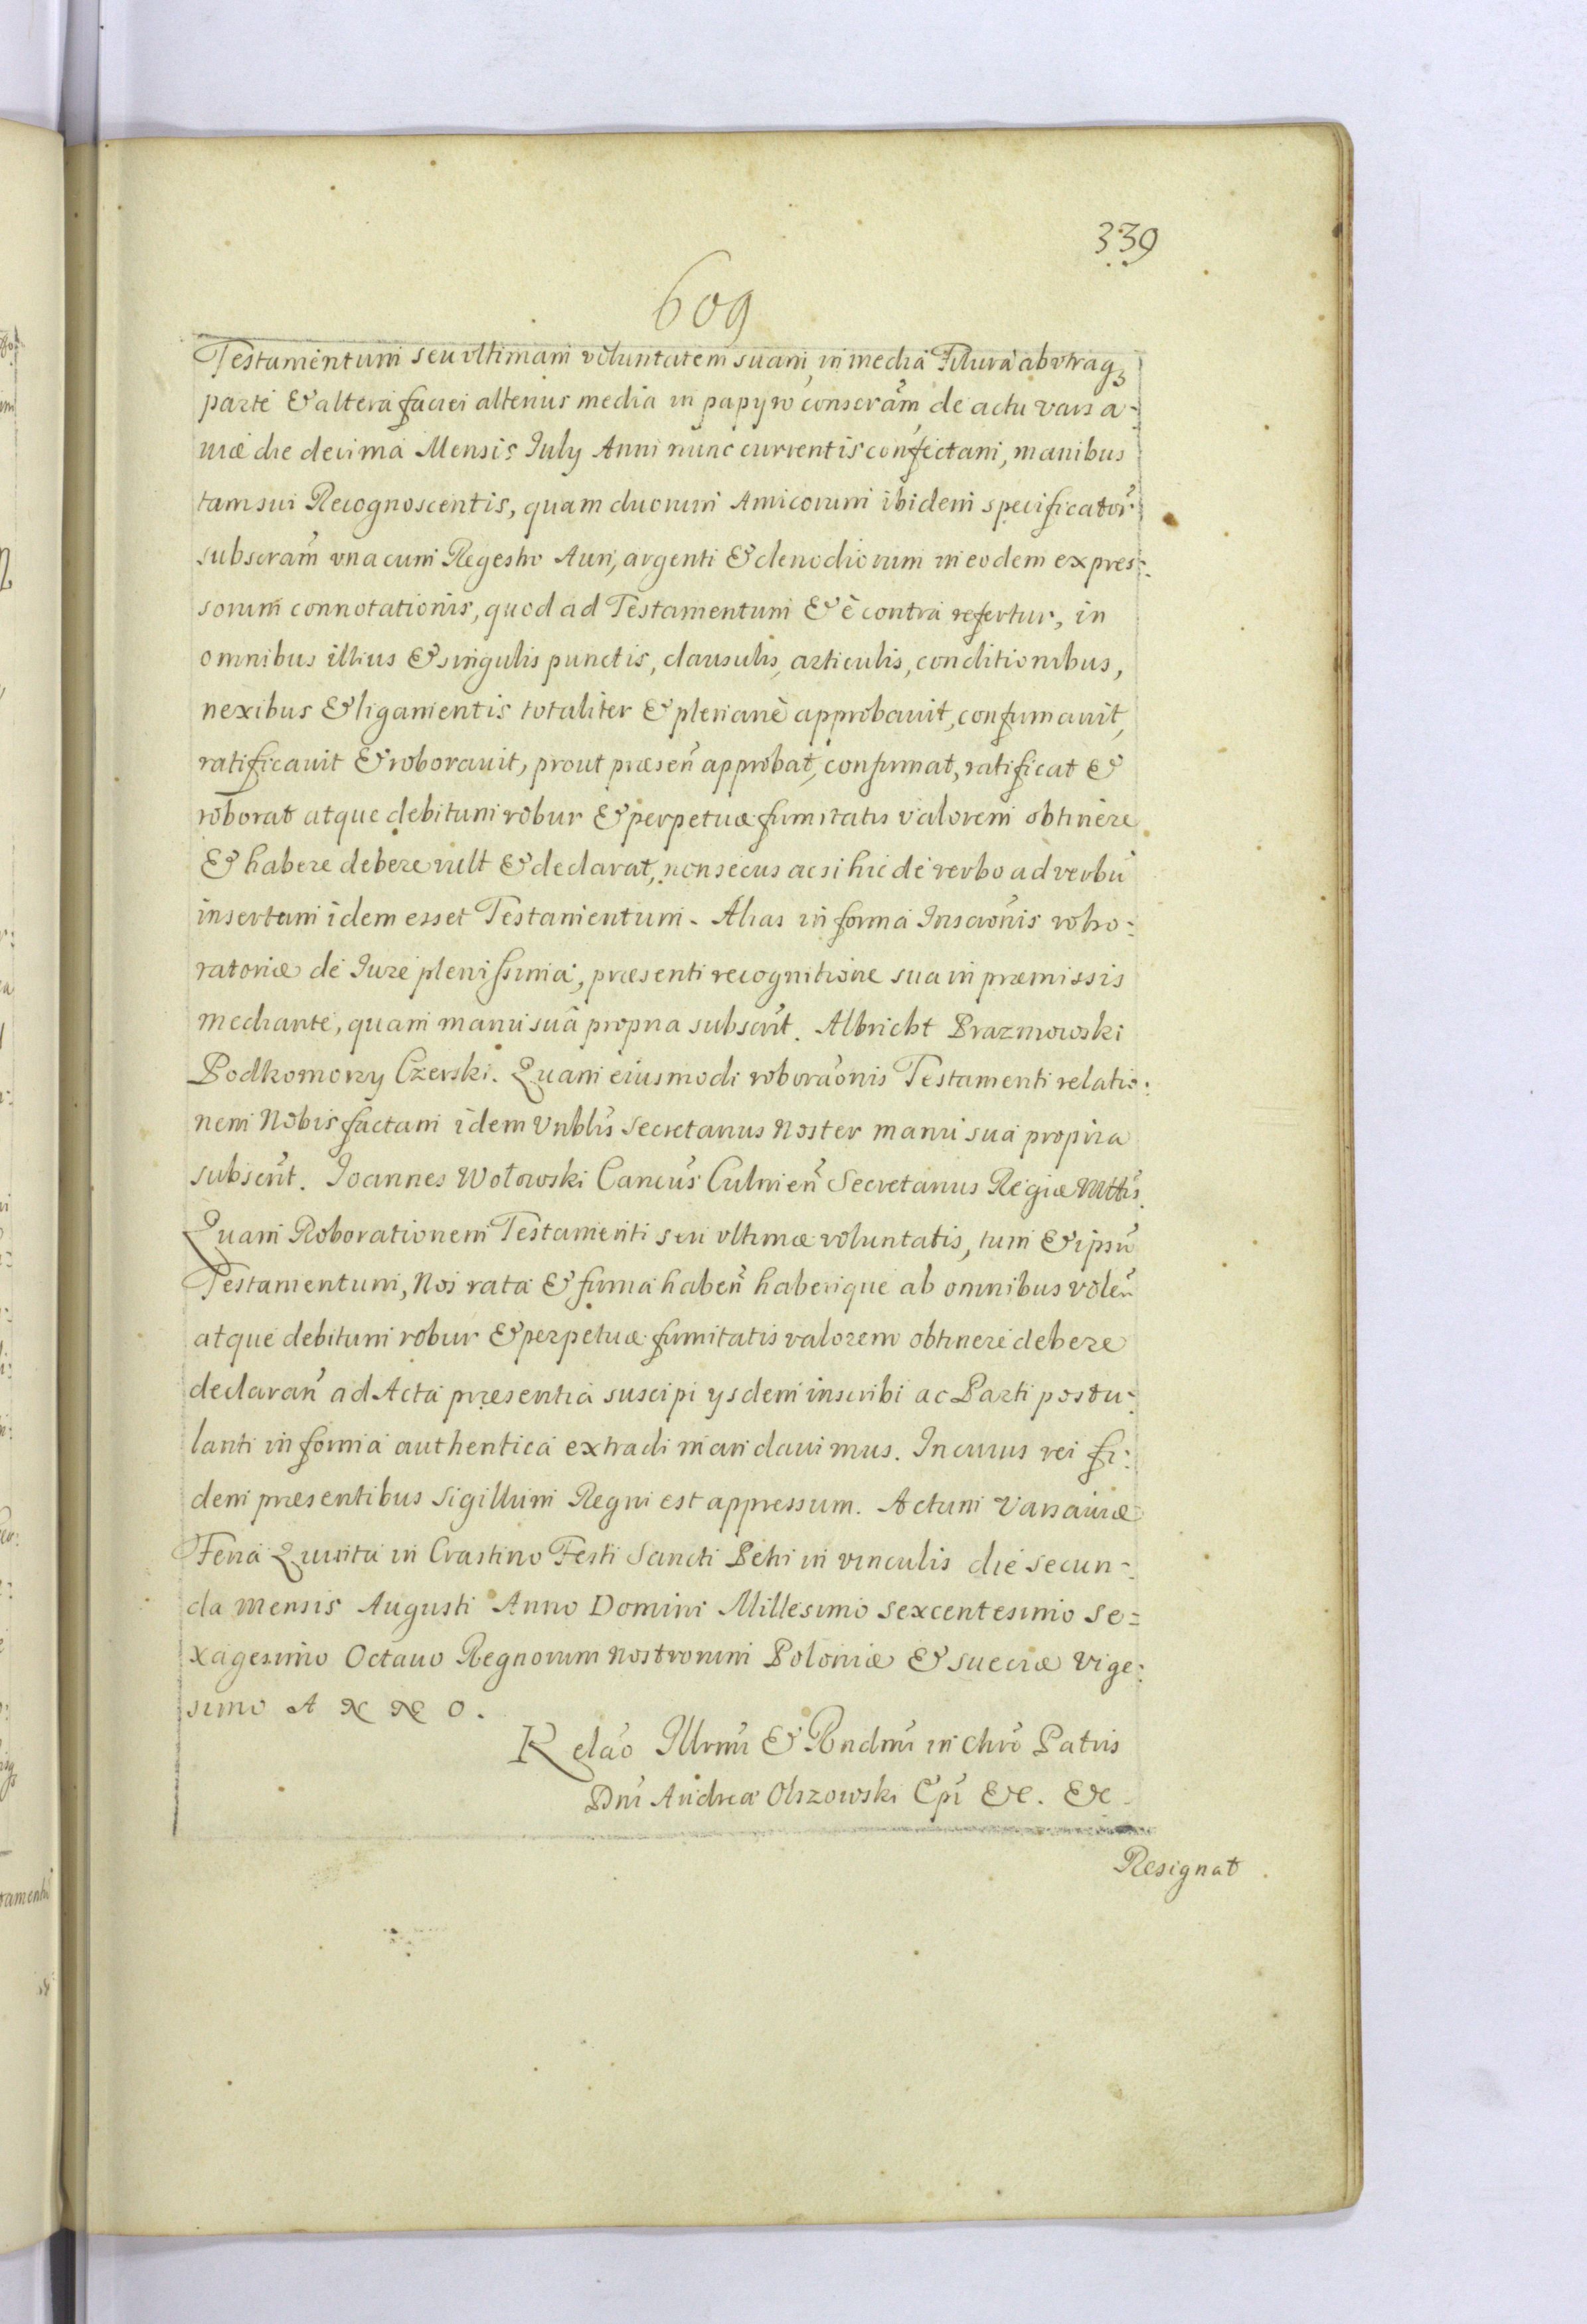 339
609
Testamentum seu vltimam voluntatem suam, in media Filura ab vtraq₃
parte & altera faciei alterius media in papyro conscram̃ de actu Varsa-
uiæ die decima Mensis July Anni nunc currentis confectam, manibus
tam sui Recognoscentis, quam duorum Amicorum ibidem specificator̃
subscram̃ vna cum Regestro Auri, argenti & clenodiorum in eodem expres:
sorum connotationis, quod ad Testamentum & è contra refertur, in
omnibus illius & singulis punctis, clausulis, articulis, conditionibus,
nexibus & ligamentis totaliter & plenariè approbauit, confirmauit,
ratificauit & roborauit, prout præsen̄ approbat, confirmat, ratificat &
roborat atque debitum robur & perpetuæ firmitatis valorem obtinere
& habere debere vult & declarat, non secus ac si hic de verbo ad verbũ
insertum idem esset Testamentum. Alias in forma Inscrõnis robo:
ratoriæ de Iure plenissima, præsenti recognitione sua in præmissis
mediante, quam manu suâ propria subscrit. Albricht Prazmowski
Podkomorzy Czerski. Quam eiusmodi roboraõnis Testamenti relatio:
nem Nobis factam idem Vnblis Secretarius Noster manu sua propria
subscrit. Joannes Wołowski Cancus Culmien̄ Secretarius Regiæ Mttis.
Quam Roborationem Testamenti seu vltimæ voluntatis, tum & ipsũ
Testamentum, Nos rata & firma haben̄ haberique ab omnibus volen̄
atque debitum robur & perpetuæ firmitatis valorem obtinere debere
declaran̄ ad Acta præsentia suscipi ysdem inscribi ac Parti postu:
lanti in forma authentica extradi mandauimus. In cuius rei fi:
dem præsentibus Sigillum Regni est appressum. Actum Varsauiæ
Feria Quinta in Crastino Festi Sancti Petri in vinculis die secun-
da mensis Augusti Anno Domini Millesimo sexcentesimo se=
xagesimo Octauo Regnorum nostrorum Poloniæ & Sueciæ Vige:
simo A N N O.
Relaõ Illrmi & Rndmi in Chrõ Patris
Dni Andreæ Olszowski Epi &c. &c.
Resignat